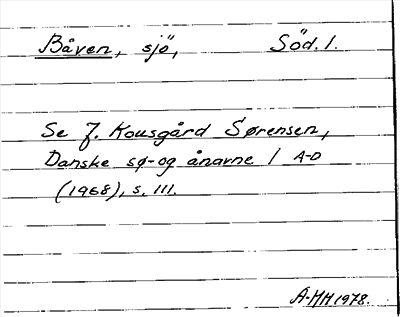 Båven, sjö, Söd. l.
Se J. Kousgård Sørensen,
Danske sø- og ånavne 1 A-D
(1968), s. 111.
A-MH 1978.